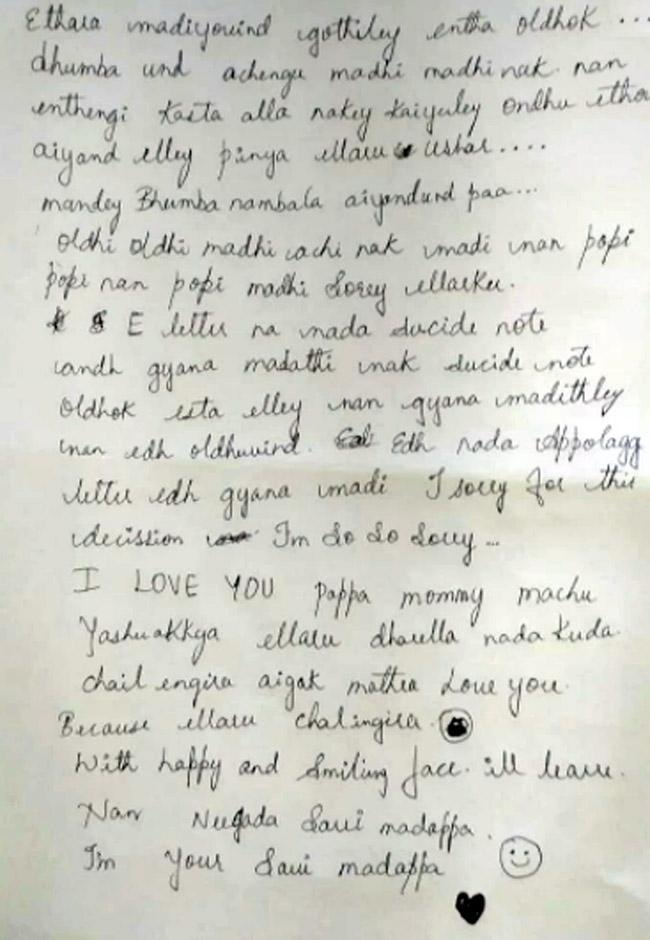 Ethara madiyovind gothiley entha oldhok ...
dhumba und achengu madhi madhi nak nan
enthengi kasta alla nakey kaiyuley ondhu etha
aiyand elley pinya ellaru ushar....
mandey Bhumba nambala aiyendund paa...
oldhi oldhi madhi cachi nak madi nan popi
popi nan popi madhi Sorey ellarku.
E letter na nada sucide note
andh gyana madathi nak sucide note
oldhok esta elley nan gyana madithley
nan edh oldhuvind. Edh nada Appolagg
letter edh gyana madi I sorry for this
decission I'm So So Sorry ...
I LOVE YOU pappa mommy machu
Yashuakkya ellaru dharella nada kuda
chail engira aigak mathra Love you.
Because ellaru chalingira.
With happy and Smiling face. ill leave.
Nan Neegada Savi madappa.
I'm Your Savi madappa